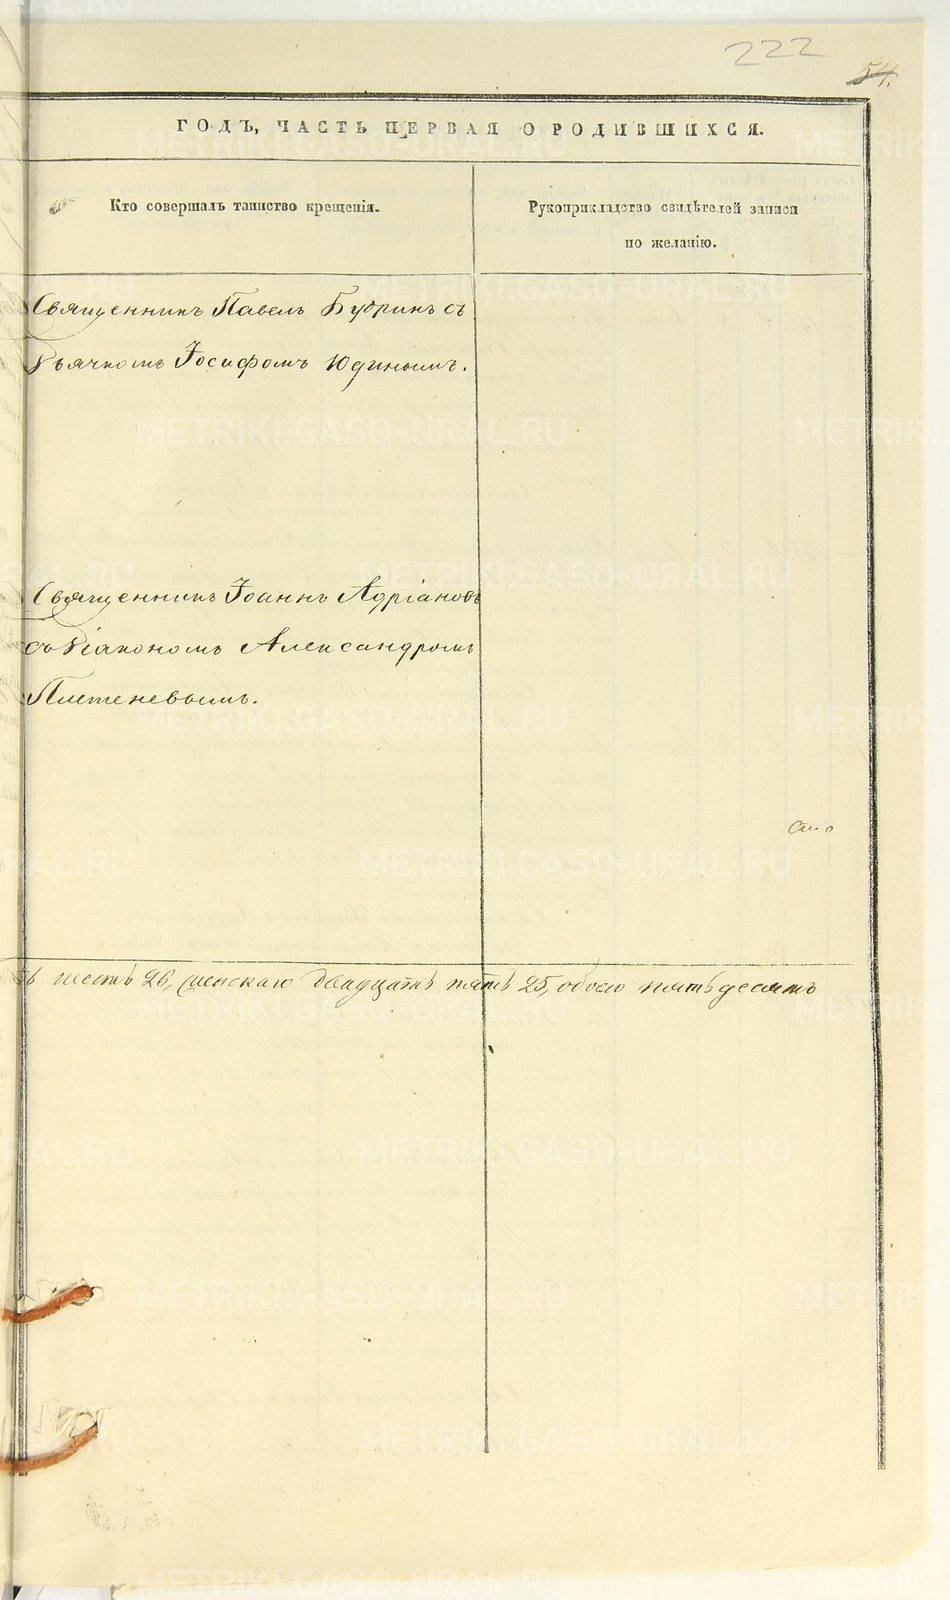 222
54.
ГОДЪ, ЧАСТЬ ПЕРВАЯ О РОДИВШИХСЯ.
Кто совершалъ таинство крещенія.
Рукоприкладство свидѣтелей записи
по желанію.
Священникъ Павелъ Будринъ съ
дьячкомъ Іосифомъ Юдинымъ.
Священникъ Іоаннъ Адріановъ
со діакономъ Александромъ
Плетеневымъ.
ь шесть 26, женскаго двадцать пять 25, обоего пятьдесятъ
METRIKI.GASO-URAL.RU